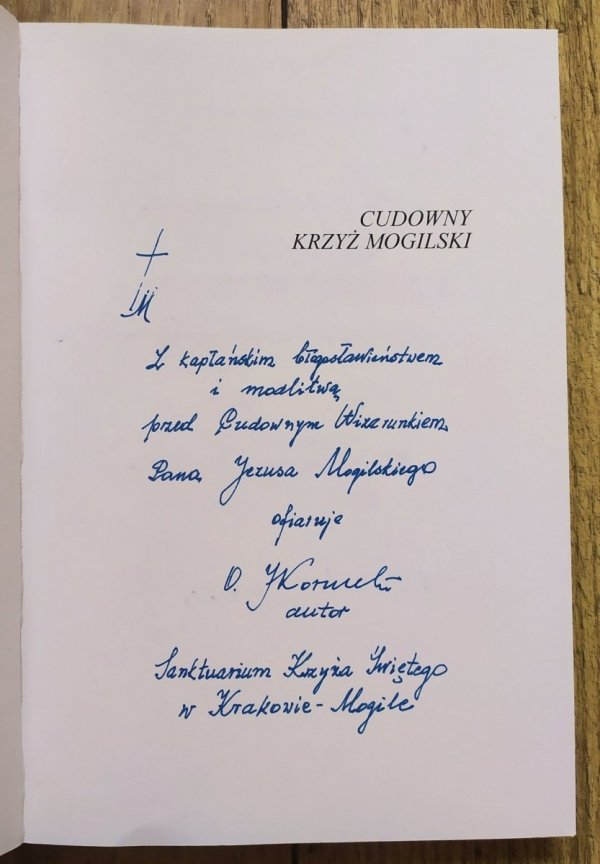 CUDOWNY
KRZYŻ MOGILSKI
Z kapłańskim błogosławieństwem
i modlitwą
przed Cudownym Wizerunkiem
Pana Jezusa Mogilskiego
ofiaruje
O.
autor
Sanktuarium Krzyża Świętego
w Krakowie-Mogile